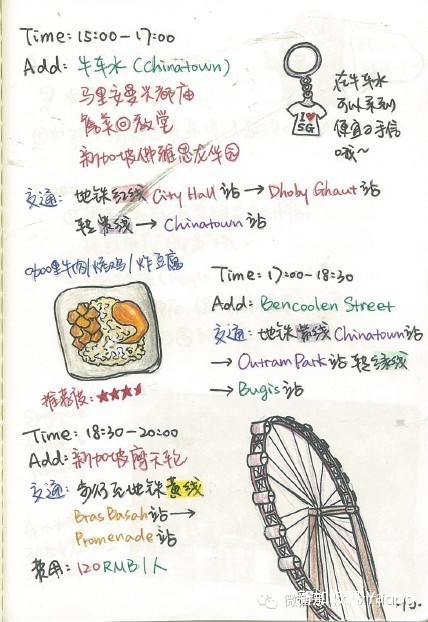 Time: 15:00-17:00
Add: 牛车水 (Chinatown)
马里安曼兴都庙
詹美回教堂
新加坡佛雅思龙华园
I ♥ SG
在牛车水
可以买到
便宜手信
哦~
交通: 地铁红线 City Hall 站 → Dhoby Ghaut 站
转紫线 → Chinatown 站
咖喱牛肉/烧鸡/炸豆腐
推荐度: ★★★★
Time: 17:00-18:30
Add: Bencoolen Street
交通: 地铁紫线 Chinatown站
→ Outram Park 站 转绿线
→ Bugis 站
Time: 18:30-20:00
Add: 新加坡摩天轮
交通: 步行至地铁黄线
Bras Basah 站 →
Promenade 站
费用: 120RMB/人